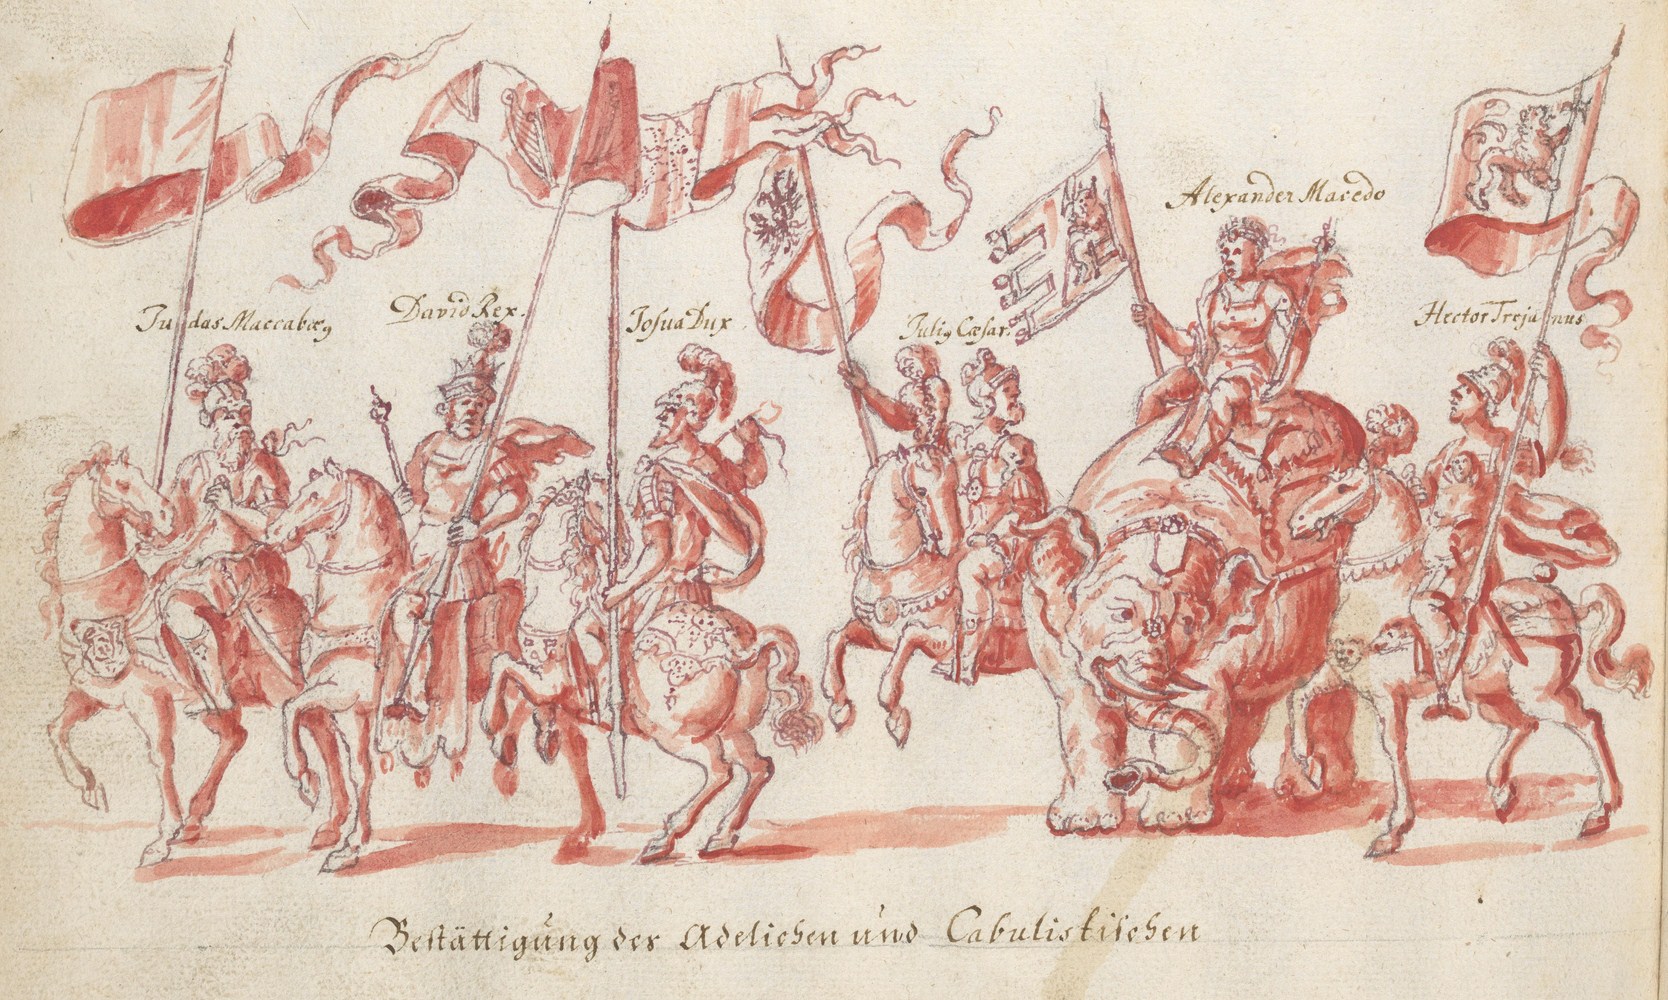 Judas Maccabæꝰ
David Rex.
Josua Dux
Juliꝰ Cæsar.
Alexander Macedo
Hector Trojanus
Bestättigüng der Adelichen und Cabulistischen